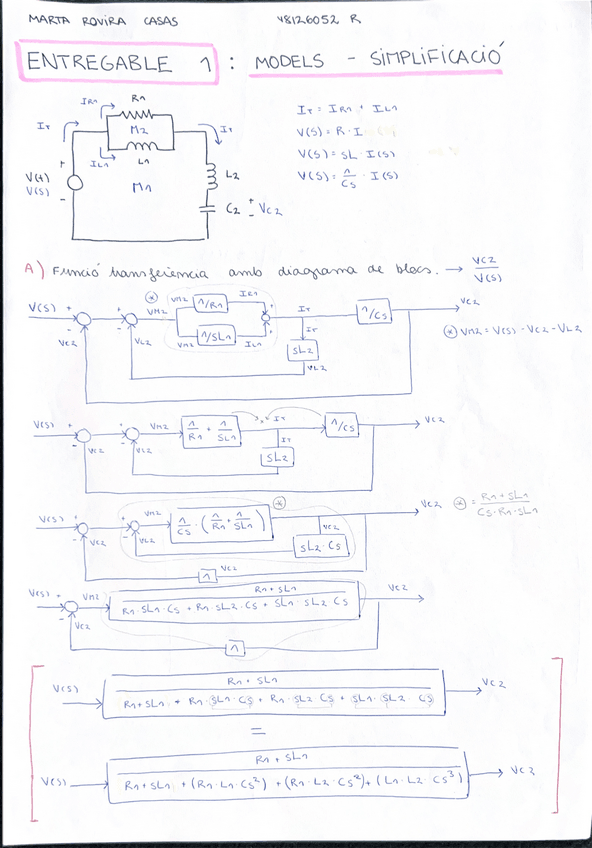 MARTA ROVIRA CASAS 48126052 R
ENTREGABLE 1 : MODELS - SIMPLIFICACIÓ
IR1 R1
IT M2 IT
IL1 L1
V(t) V(s) + - M1 L2
C2 + - VC2
IT = IR1 + IL1
V(s) = R · I
V(s) = sL · I(s)
V(s) = 1/Cs · I(s)
A) Funció transferència amb diagrama de blocs. → VC2/V(s)
V(s) + - VC2 + - VL2 * VM2 VM2 1/R1 IR1 VM2 1/sL1 IL1 + + IT IT sL2 VL2 1/Cs VC2
* VM2 = V(s) - VC2 - VL2
V(s) + - VC2 + - VL2 VM2 1/R1 + 1/sL1 IT IT sL2 1/Cs VC2
V(s) + - VC2 + - VL2 VM2 1/Cs · (1/R1 + 1/sL1) * VC2 sL2 · Cs VC2
* = R1 + sL1 / Cs · R1 · sL1
1 VC2
V(s) + - VC2 VM2 R1 + sL1 / R1 · sL1 · Cs + R1 · sL2 · Cs + sL1 · sL2 Cs VC2
1
V(s) R1 + sL1 / R1 + sL1 + R1 · sL1 · Cs + R1 · sL2 Cs + sL1 · sL2 · Cs VC2
=
V(s) R1 + sL1 / R1 + sL1 + (R1 · L1 · Cs²) + (R1 · L2 · Cs²) + (L1 · L2 · Cs³) VC2